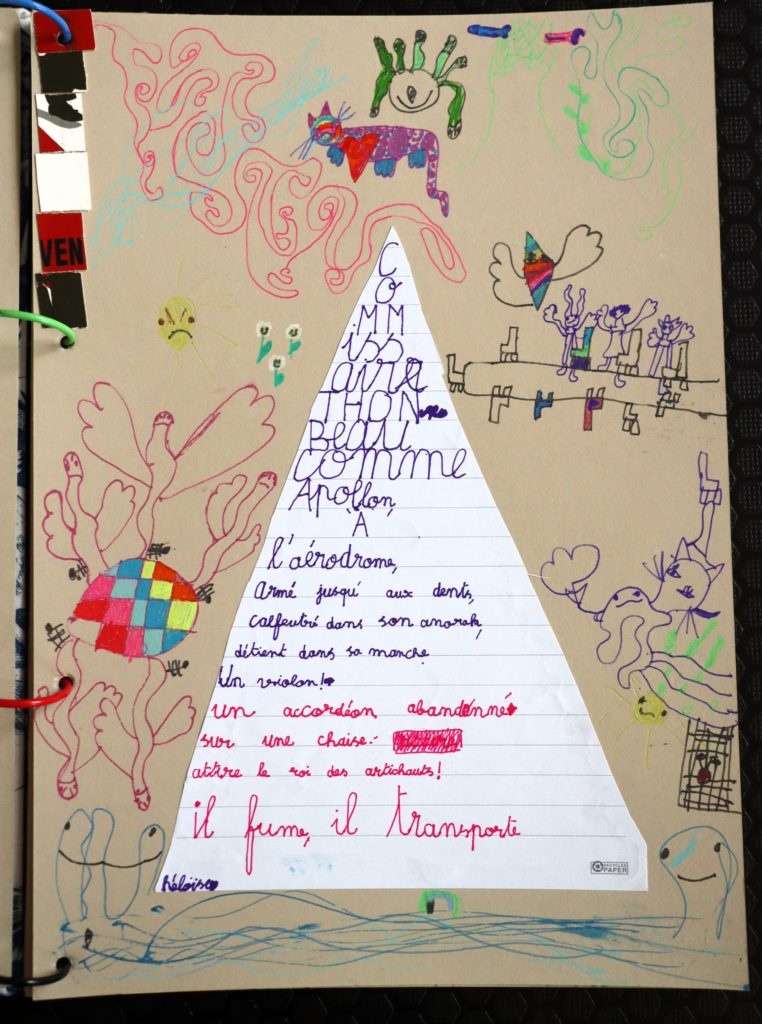 VEN
C
O
MM
iss
aire
THON
Beau
comme
Apollon,
A
l'aérodrome,
Armé jusqu' aux dents,
calfeutré dans son anorak,
détient dans sa manche
Un violon!
un accordéon abandonné
sur une chaise
attire le roi des artichauts!
il fume, il transporte
RECYCLED
PAPER
Héloïse